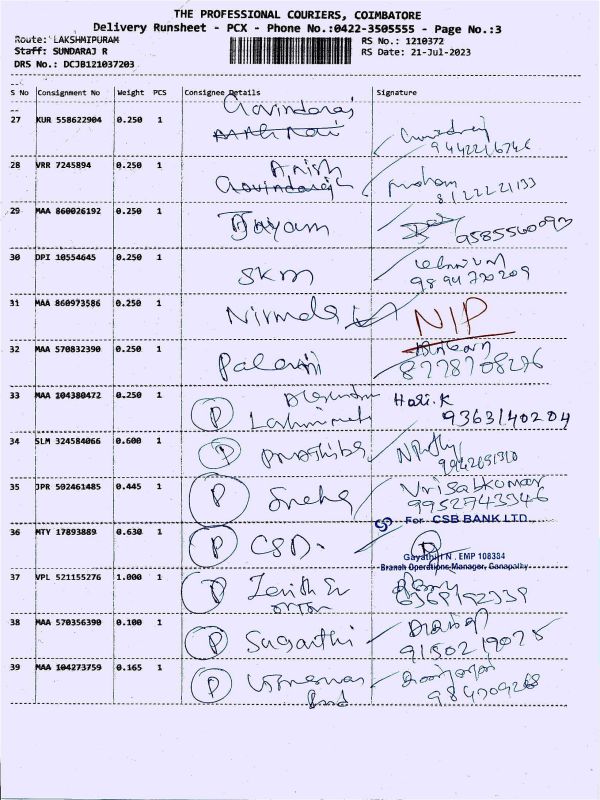 THE PROFESSIONAL COURIERS, COIMBATORE
Delivery Runsheet - PCX - Phone No.:0422-3505555 - Page No.:3
Route: LAKSHMIPURAM RS No.: 1210372
Staff: SUNDARAJ R RS Date: 21-Jul-2023
DRS No.: DCJB121037203
S No Consignment No Weight PCS Consignee Details Signature
27 KUR 558622904 0.250 1 Govindaraj
9442216746
28 VRR 7245894 0.250 1 Anish
Govindaraj 8122221133
29 MAA 860026192 0.250 1 Jayam 9585560093
30 DPI 10554645 0.250 1 SKM
9894770209
31 MAA 860973586 0.250 1 Nirmala NIP
32 MAA 570832390 0.250 1 Palani 8778708276
33 MAA 104380472 0.250 1 P Hari.K
9363140204
34 SLM 324584066 0.600 1 P Prathiba
35 JPR 502461485 0.445 1 P Sneha
9952743346
For CSB BANK LTD.
36 MTY 17893889 0.630 1 P CSB
Gayathiri N . EMP 108384
Branch Operations Manager, Ganapathy
37 VPL 521155276 1.000 1 P Zenith
6369192339
38 MAA 570356390 0.100 1 P Suganthi
9150219075
39 MAA 104273759 0.165 1 P